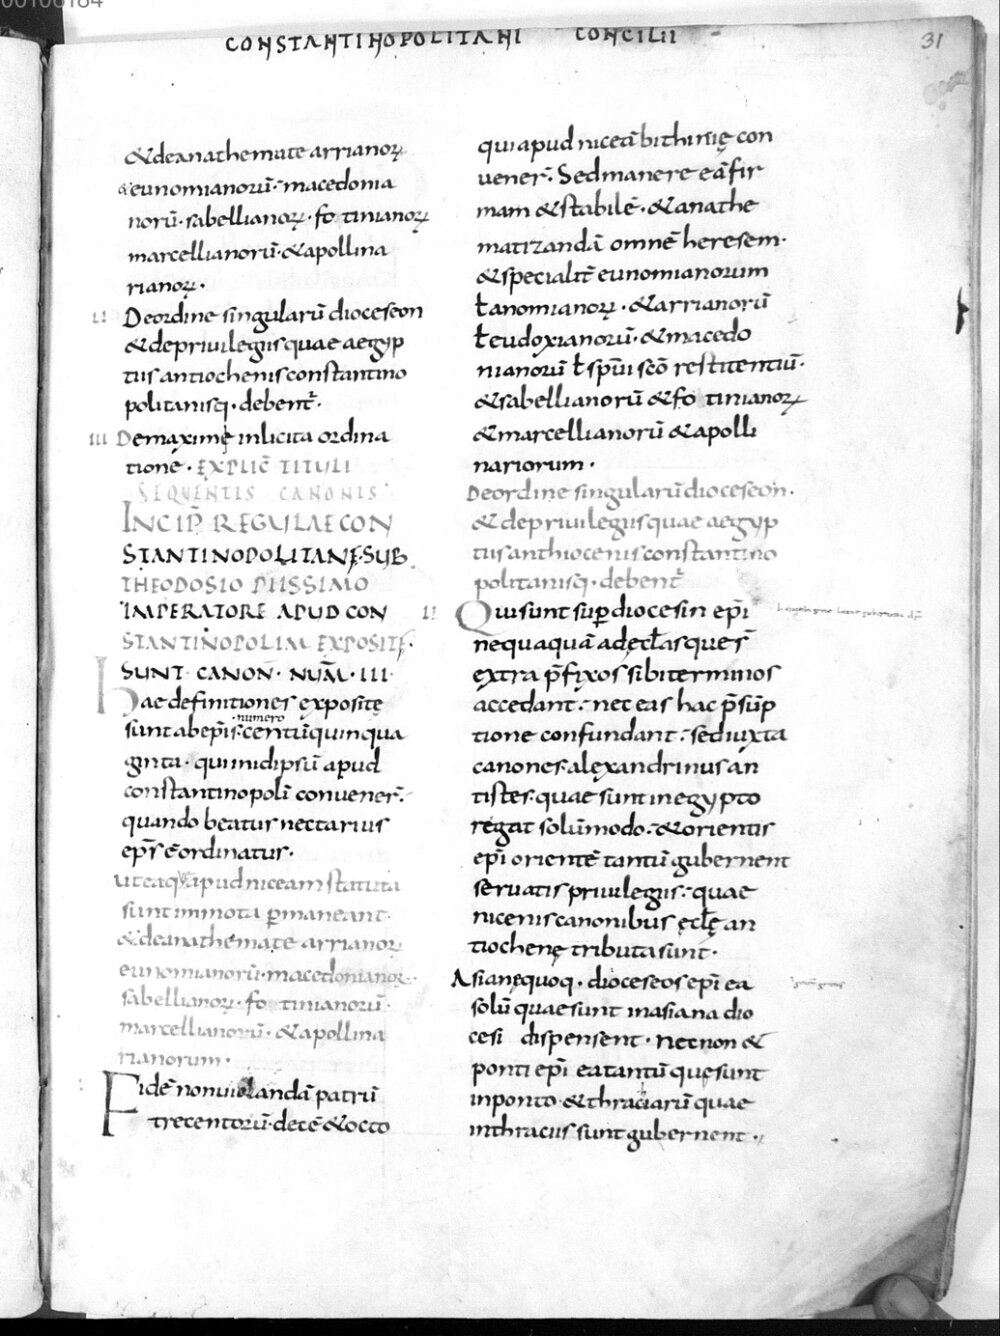 00106184
CONSTANTINOPOLITANI CONCILII
31
&deanathemate arrianoꝝ
&eunomianorū·macedonia
norū·sabellianoꝝ·fo tinianoꝝ
marcellianorū·&apollina
rianoꝝ·
II Deordine singularū dioceseon
&depriuilegiis quae aegyp
tus antiochenis constantino
politanisq·debent̄·
III Demaxime inlicita ordina
tione·EXPLIC̄ TITULI
SEQUENTIS CANONIS
INCIP̄ REGULAE CON
STANTINOPOLITANĘ·SUB
THEODOSIO PIISSIMO
IMPERATORE APUD CON
STANTINOPOLIM EXPOSITĘ·
SUNT·CANON·NUM̄·III·
Hae definitiones expositę
sunt ab ep̄is·numero centū quinqua
ginta·qui inidipsū apud
constantinopolī conuener̄·
quando beatus nectarius
ep̄s ē ordinatus·
utea q apud niceam statuta
sunt inmota ꝑmaneant·
&deanathemate arrianoꝝ
eunomianorū·macedonianoꝝ·
sabellianoꝝ·fo tinianorū·
marcellianorū·&apollina
rianorum·
Fidē nonuiolandā patrū
trecentorū·decē&octo
qui apud niceā bithinię con
uener̄·Sed manere eā fir
mam &stabilē·&anathe
matizandā omnē heresem·
&specialit̄ eunomianorum
ƚ anomianoꝝ·&arrianorū
ƚ eudoxianorū·&macedo
nianorū ƚ sp̄ui sc̄o restitentiū·
&sabellianorū &fo tinianoꝝ
&marcellianorū &apolli
nariorum·
Deordine singularū dioceseon·
&depriuilegiis quae aegyp
tus anthiocenis constantino
politanisq·debent̄
II Qui sunt sup̄ diocesin ep̄i
nequaquā ad eccƚas quęs̄
extra p̄fixos sibi terminos
accedant·nec eas hac p̄sūp
tione confundant·sed iuxta
canones·alexandrinus an
tistes·quae sunt in egypto
regat solūmodo·&orientis
ep̄i orientē tantū gubernent
seruatis priuilegiis·quae
nicenis canonibus ęcƚę an
tiochenę tributa sunt·
Asianęquoq·dioceseos ep̄i ea
solū quae sunt in asiana dio
cesi dispensent·necnon &
ponti ep̄i ea tantū quę sunt
in ponto·&thraciarū quae
in thraciis sunt gubernent·